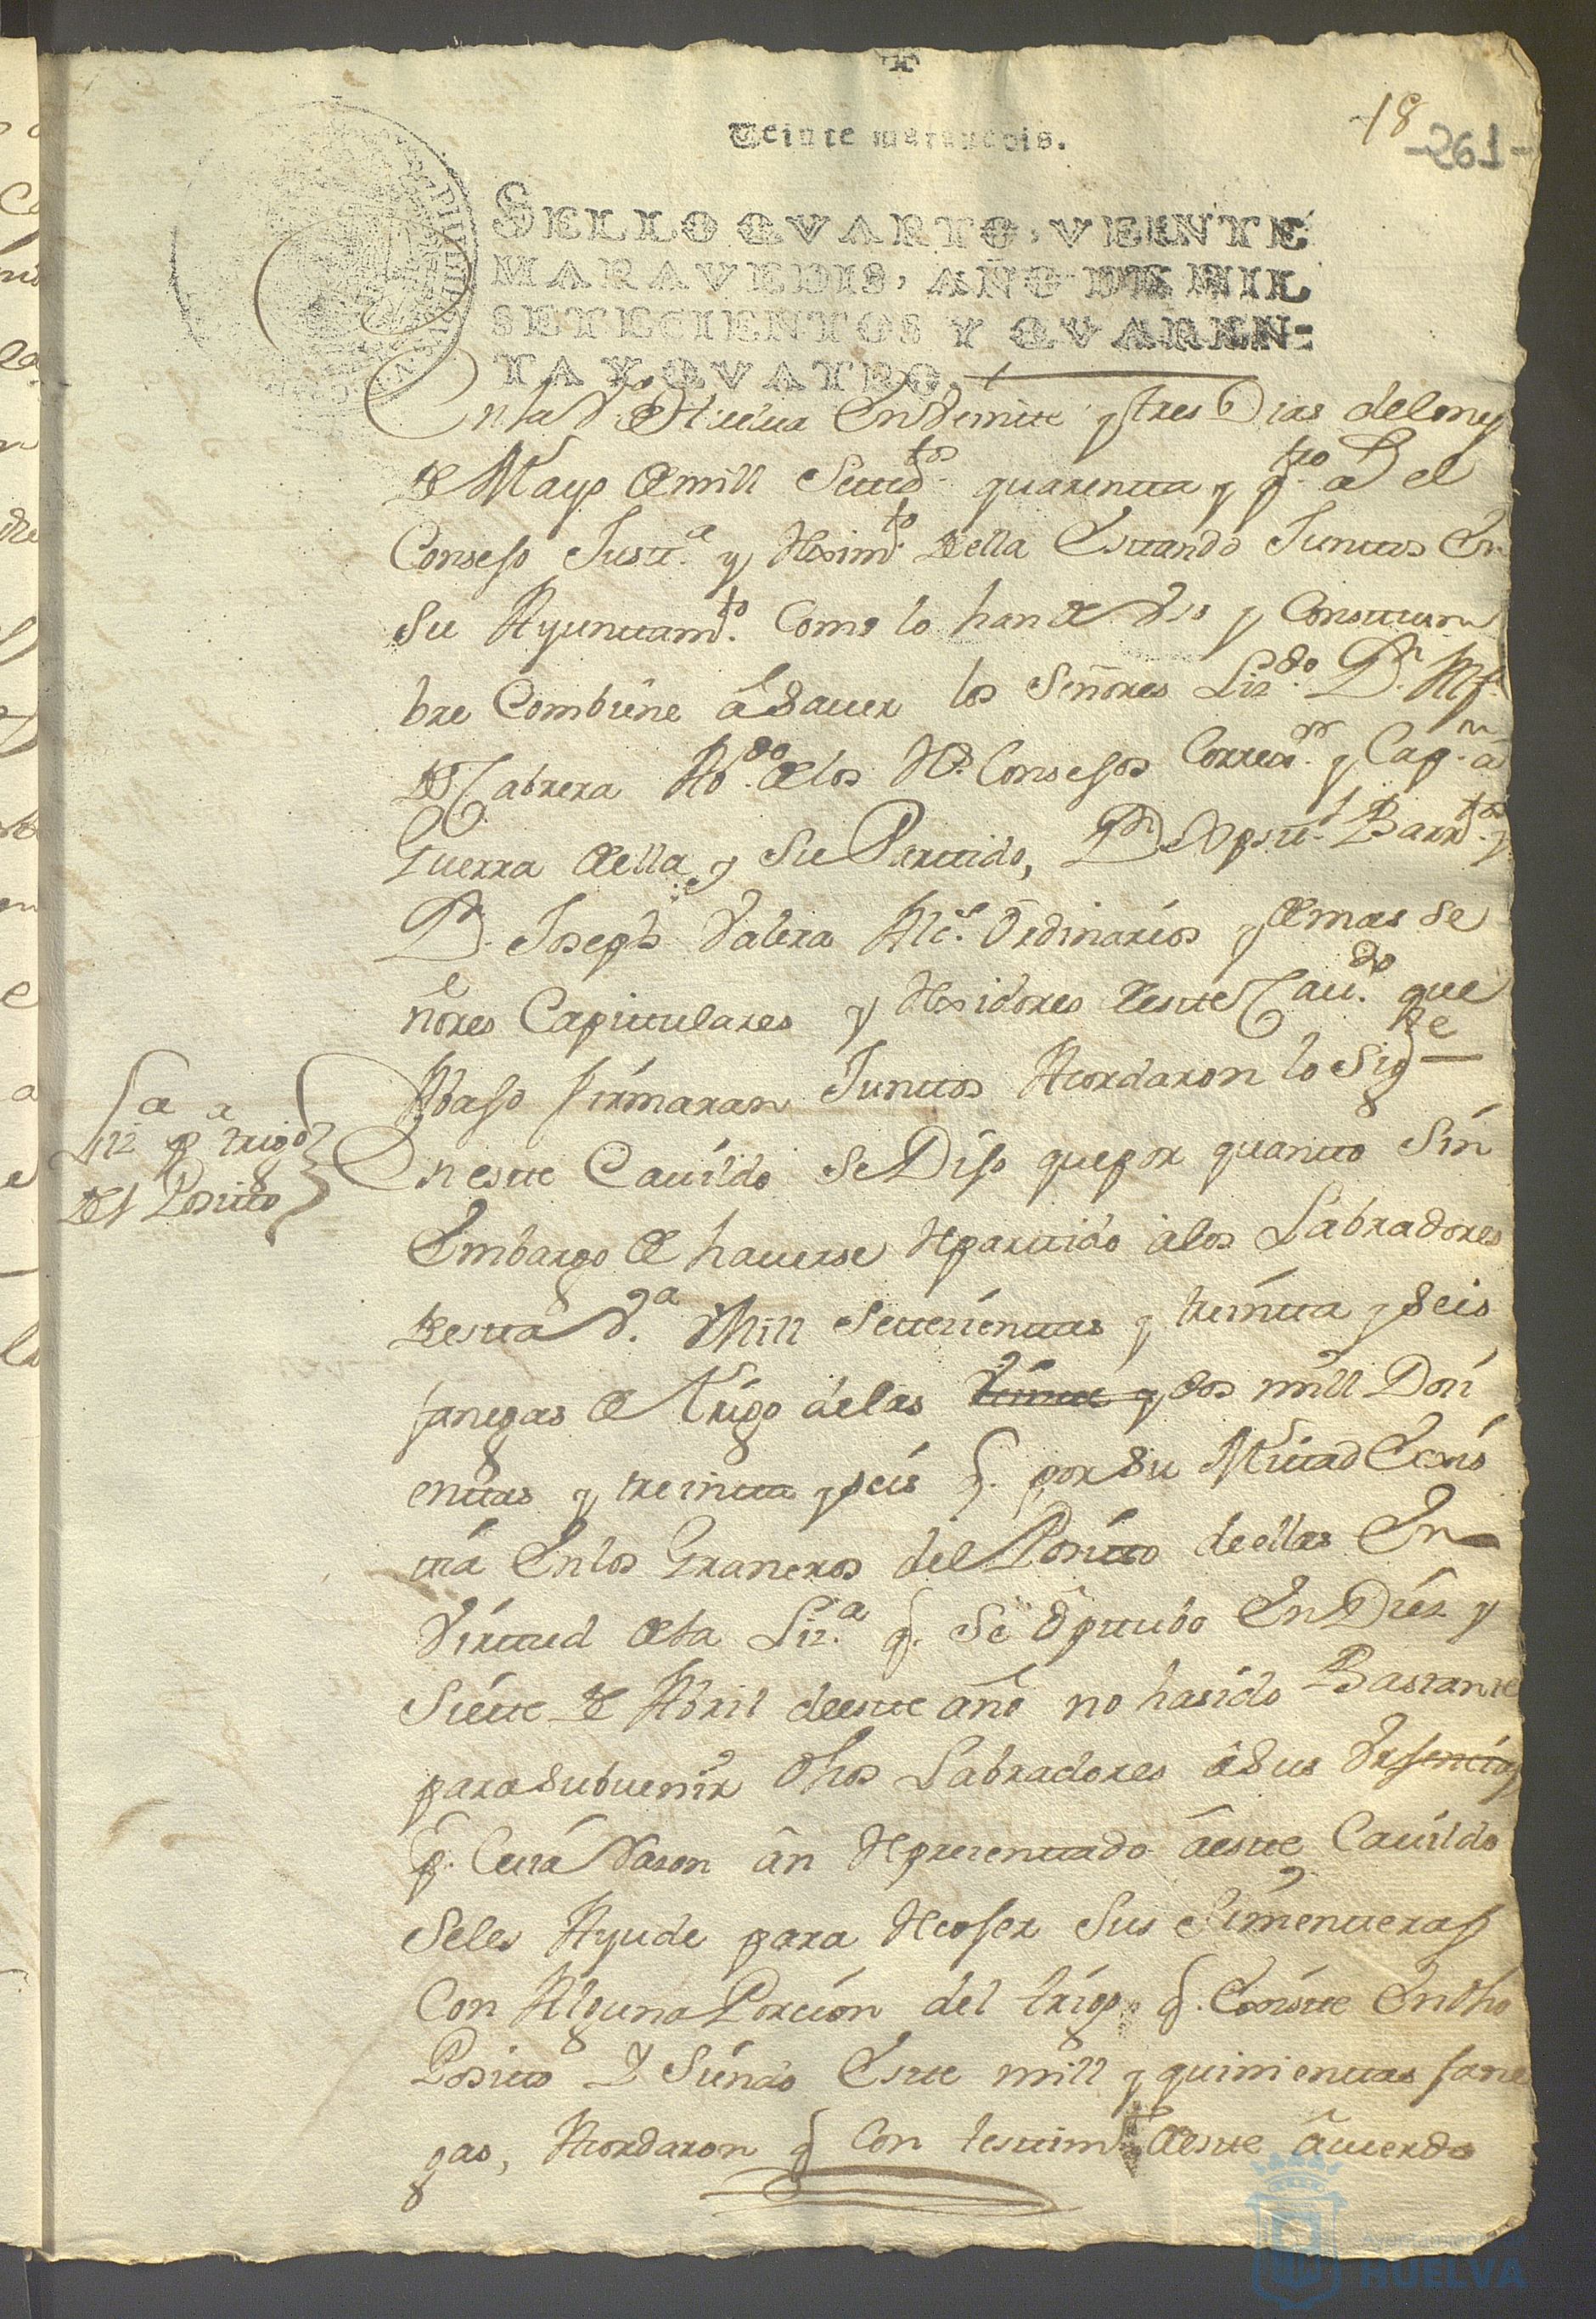 Veinte maravedis.
18
-261-
SELLO QVARTO, VEINTE
MARAVEDIS, AÑO DE MIL
SETECIENTOS Y QVAREN-
TA Y QVATRO.
En la Vª de Huelua En Veinte y tres Dias del mes
de Mayo de mill Settos quarenta y qtro as el
Consejo Justª y Reximto della Estando Juntos En
Su Ayuntamto Como lo han de Vso y Constum
bre Combiene â Sauer los Señores Lizdo Dn
de Cabrera Abdo de los Rs Consejos Correor y Capn â
Guerra della y Su Partido, Dn Bapstª Barrtos y
Dn Joseph Valera Alces Ordinarios y demas Se
ñores Capitulares y Rexidores deste Caudo que
Abajo firmaran Juntos Acordaron lo Sigte
Lizª pª trigo
del Posito
En este Cauildo Se Dijo que por quanto Sin
Embargo de hauerse Repartido a los Labradores
desta Vª Mill Setecientas y treinta y Seis
fanegas de trigo de las Veinte y dos mill Doci
entas y treinta y seis q. por Su Mitad Exis
tia En los Graneros del Posito de ellas En
Virtud de la Lizª q. Se Optubo En Diez y
Siete de Abril deeste año no ha sido Bastante
para Subuenir dhos Labradores â Sus Vrsencias
p. Cuia Rason ân Representado âeste Cauildo
Seles Ayude para Recoser Sus Simenteras
Con Alguna Porcion del trigo q. Existe En dho
Posito Y Siendo Este mill y quinientas fane
gas, Acordaron q Con testimo deste âcuerdo
Ayuntamiento de
HUELVA